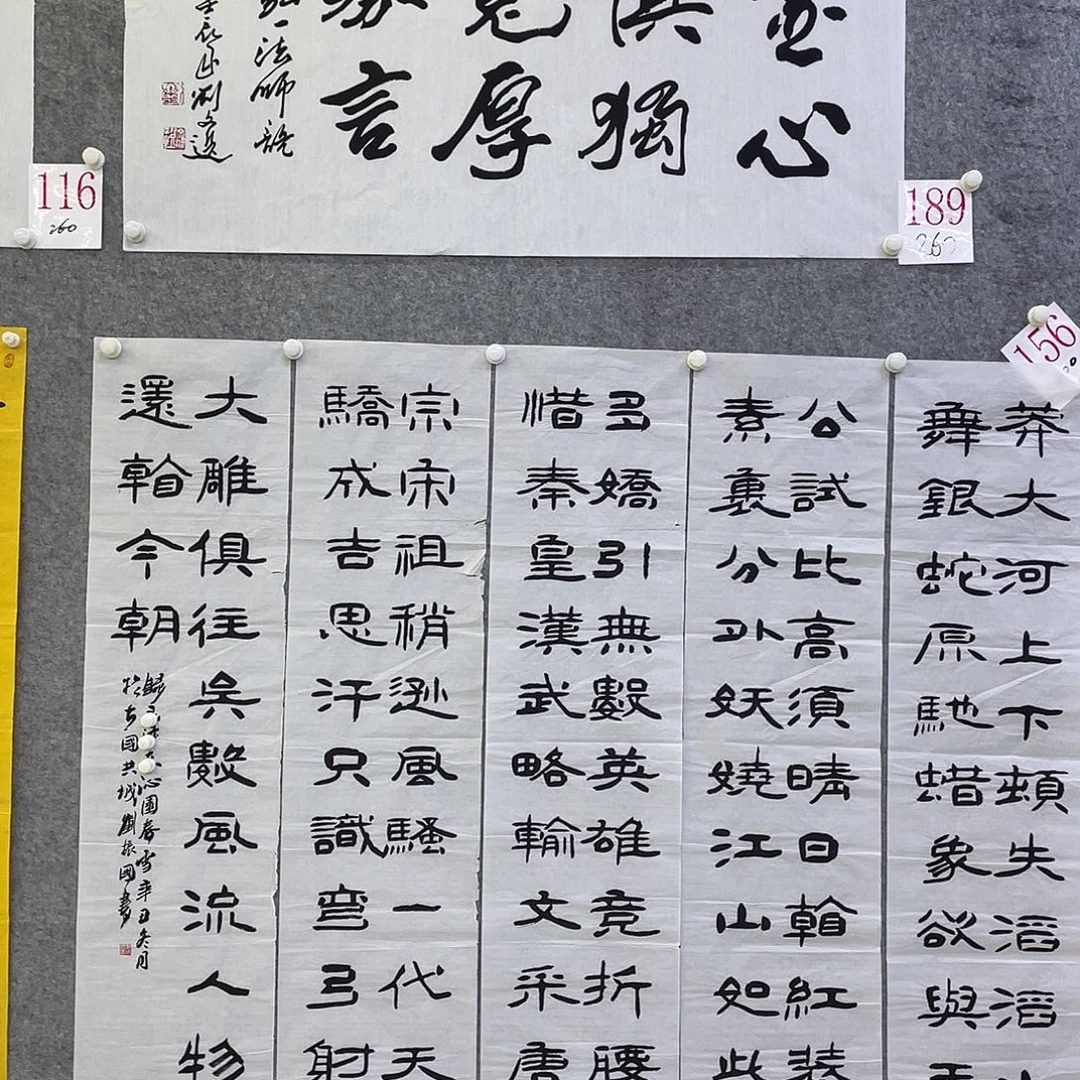 心
獨
厚
言
弘一法師語
116
260
189
260
156
莽大河上下頓失滔滔山
舞銀蛇原馳蜡象欲與天
公試比高須晴日看紅裝
素裹分外妖嬈江山如此
多嬌引無數英雄竞折腰
惜秦皇漢武略輸文采唐
宗宋祖稍遜風騷一代天
驕成吉思汗只識彎弓射
大雕俱往矣數風流人物
還看今朝
錄毛沁園春雪辛丑冬月
於古國共城劉振國書